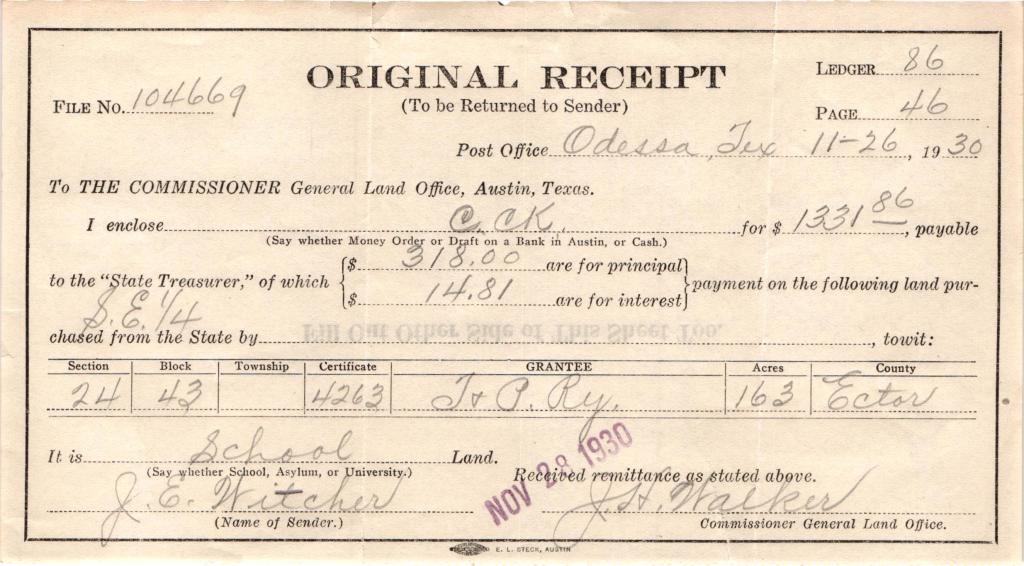 ORIGINAL RECEIPT
(To be Returned to Sender)
LEDGER 86
FILE NO. 104669
PAGE 46
Post Office Odessa, Tex 11-26, 1930
To THE COMMISSIONER General Land Office, Austin, Texas.
I enclose C. CK. for $ 1331 86, payable
(Say whether Money Order or Draft on a Bank in Austin, or Cash.)
to the "State Treasurer," of which { $ 318.00 are for principal
$ 14.81 are for interest } payment on the following land pur-
S.E. 1/4
chased from the State by , towit:
Fill Out Other Side of This Sheet Too.
Section Block Township Certificate GRANTEE Acres County
24 43 4263 T & P. Ry. 163 Ector
It is School Land.
(Say whether School, Asylum, or University.)
NOV 28 1930
Received remittance as stated above.
J. E. Witcher J. H. Walker
(Name of Sender.) Commissioner General Land Office.
E. L. STECK, AUSTIN